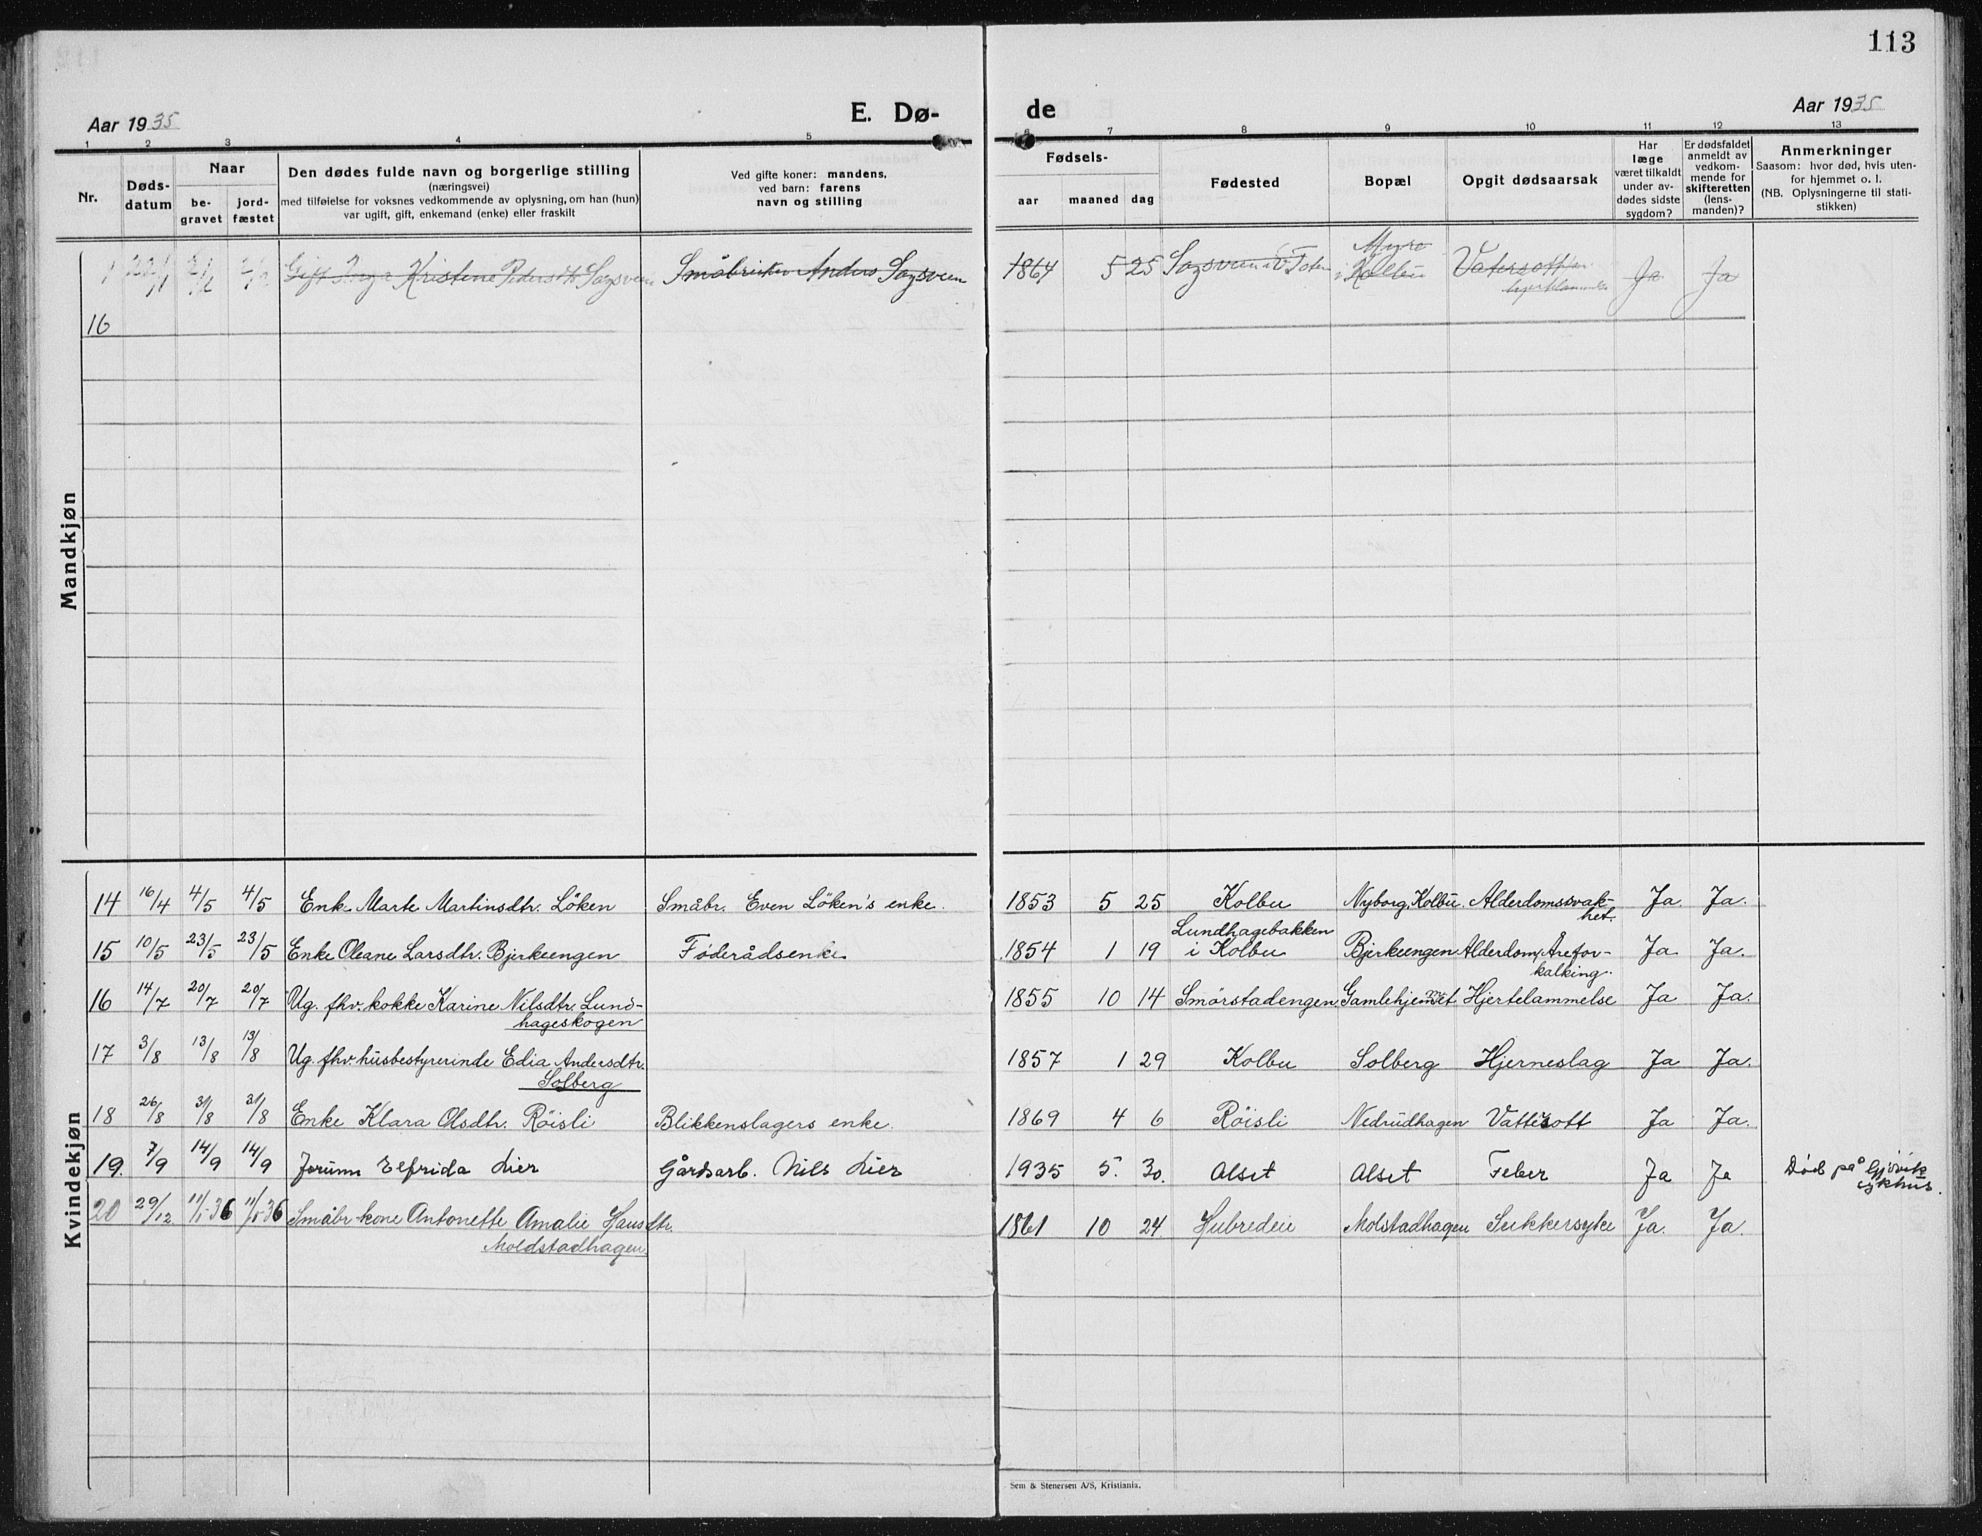 113
Aar 1935
E. Dø-
de
Aar 1935
1 2 3 4 5 6 7 8 9 10 11 12 13
Nr.
Døds-
datum
Naar
be-
gravet
jord-
fæstet
Den dødes fulde navn og borgerlige stilling
(næringsvei)
med tilføielse for voksnes vedkommende av oplysning, om han (hun)
var ugift, gift, enkemand (enke) eller fraskilt
Ved gifte koner: mandens,
ved barn: farens
navn og stilling
Fødsels-
aar maaned dag
Fødested
Bopæl
Opgit dødsaarsak
Har
læge
været tilkaldt
under av-
dødes sidste
sygdom?
Er dødsfaldet
anmeldt av
vedkom-
mende for
skifteretten
(lens-
manden)?
Anmerkninger
Saasom: hvor død, hvis uten-
for hjemmet o. l.
(NB. Oplysningerne til stati-
stikken)
Mandkjøn
1 Gift Kristine Pedersdtr Sagsveen Småbruker Anders Sagsveen 1864 5 25 Sagsveen i V. Toten Myre i Kolbu Vatersott Ja Ja
16
Kvindekjøn
14 16/4 4/5 4/5 Enke Marte Martinsdtr. Löken Småbr. Even Löken's enke. 1853 5 25 Kolbu Nyborg, Kolbu. Alderdomssvak-
het. Ja Ja.
15 10/5 23/5 23/5 Enke Oleane Larsdtr. Bjerkeengen Føderådsenke 1854 1 19 Lundhagebakken
i Kolbu Bjerkeengen Alderdom, Årefor-
kalking. Ja Ja.
16 14/7 20/7 20/7 Ug. fhv. kokke Karine Nilsdtr. Lund-
hageskogen 1855 10 14 Smörstadengen Gamlehjemmet Hjertelammelse Ja Ja.
17 3/8 13/8 13/8 Ug. fhv. husbestyrerinde Edia Andersdtr.
Solberg 1857 1 29 Kolbu Solberg Hjerneslag Ja Ja.
18 26/8 31/8 31/8 Enke Klara Olsdtr. Röisli Blikkenslagers enke. 1869 4 6 Röisli Nedrudhagen Vattersott Ja Ja.
19. 7/9 14/9 14/9 Jorunn Elfrida Lier Gårdsarb. Nils Lier 1935 5. 30. Alset Alset Feber Ja Ja Död på Gjövik
sykhus.
20 29/12 11/1-36 11/1-36 Småbr.kone Antonette Amalie Hansdtr.
Moldstadhagen 1861 10 24. Hubredeie Molstadhagen Sukkersyke Ja. Ja.
Sem & Stenersen A/S, Kristiania.